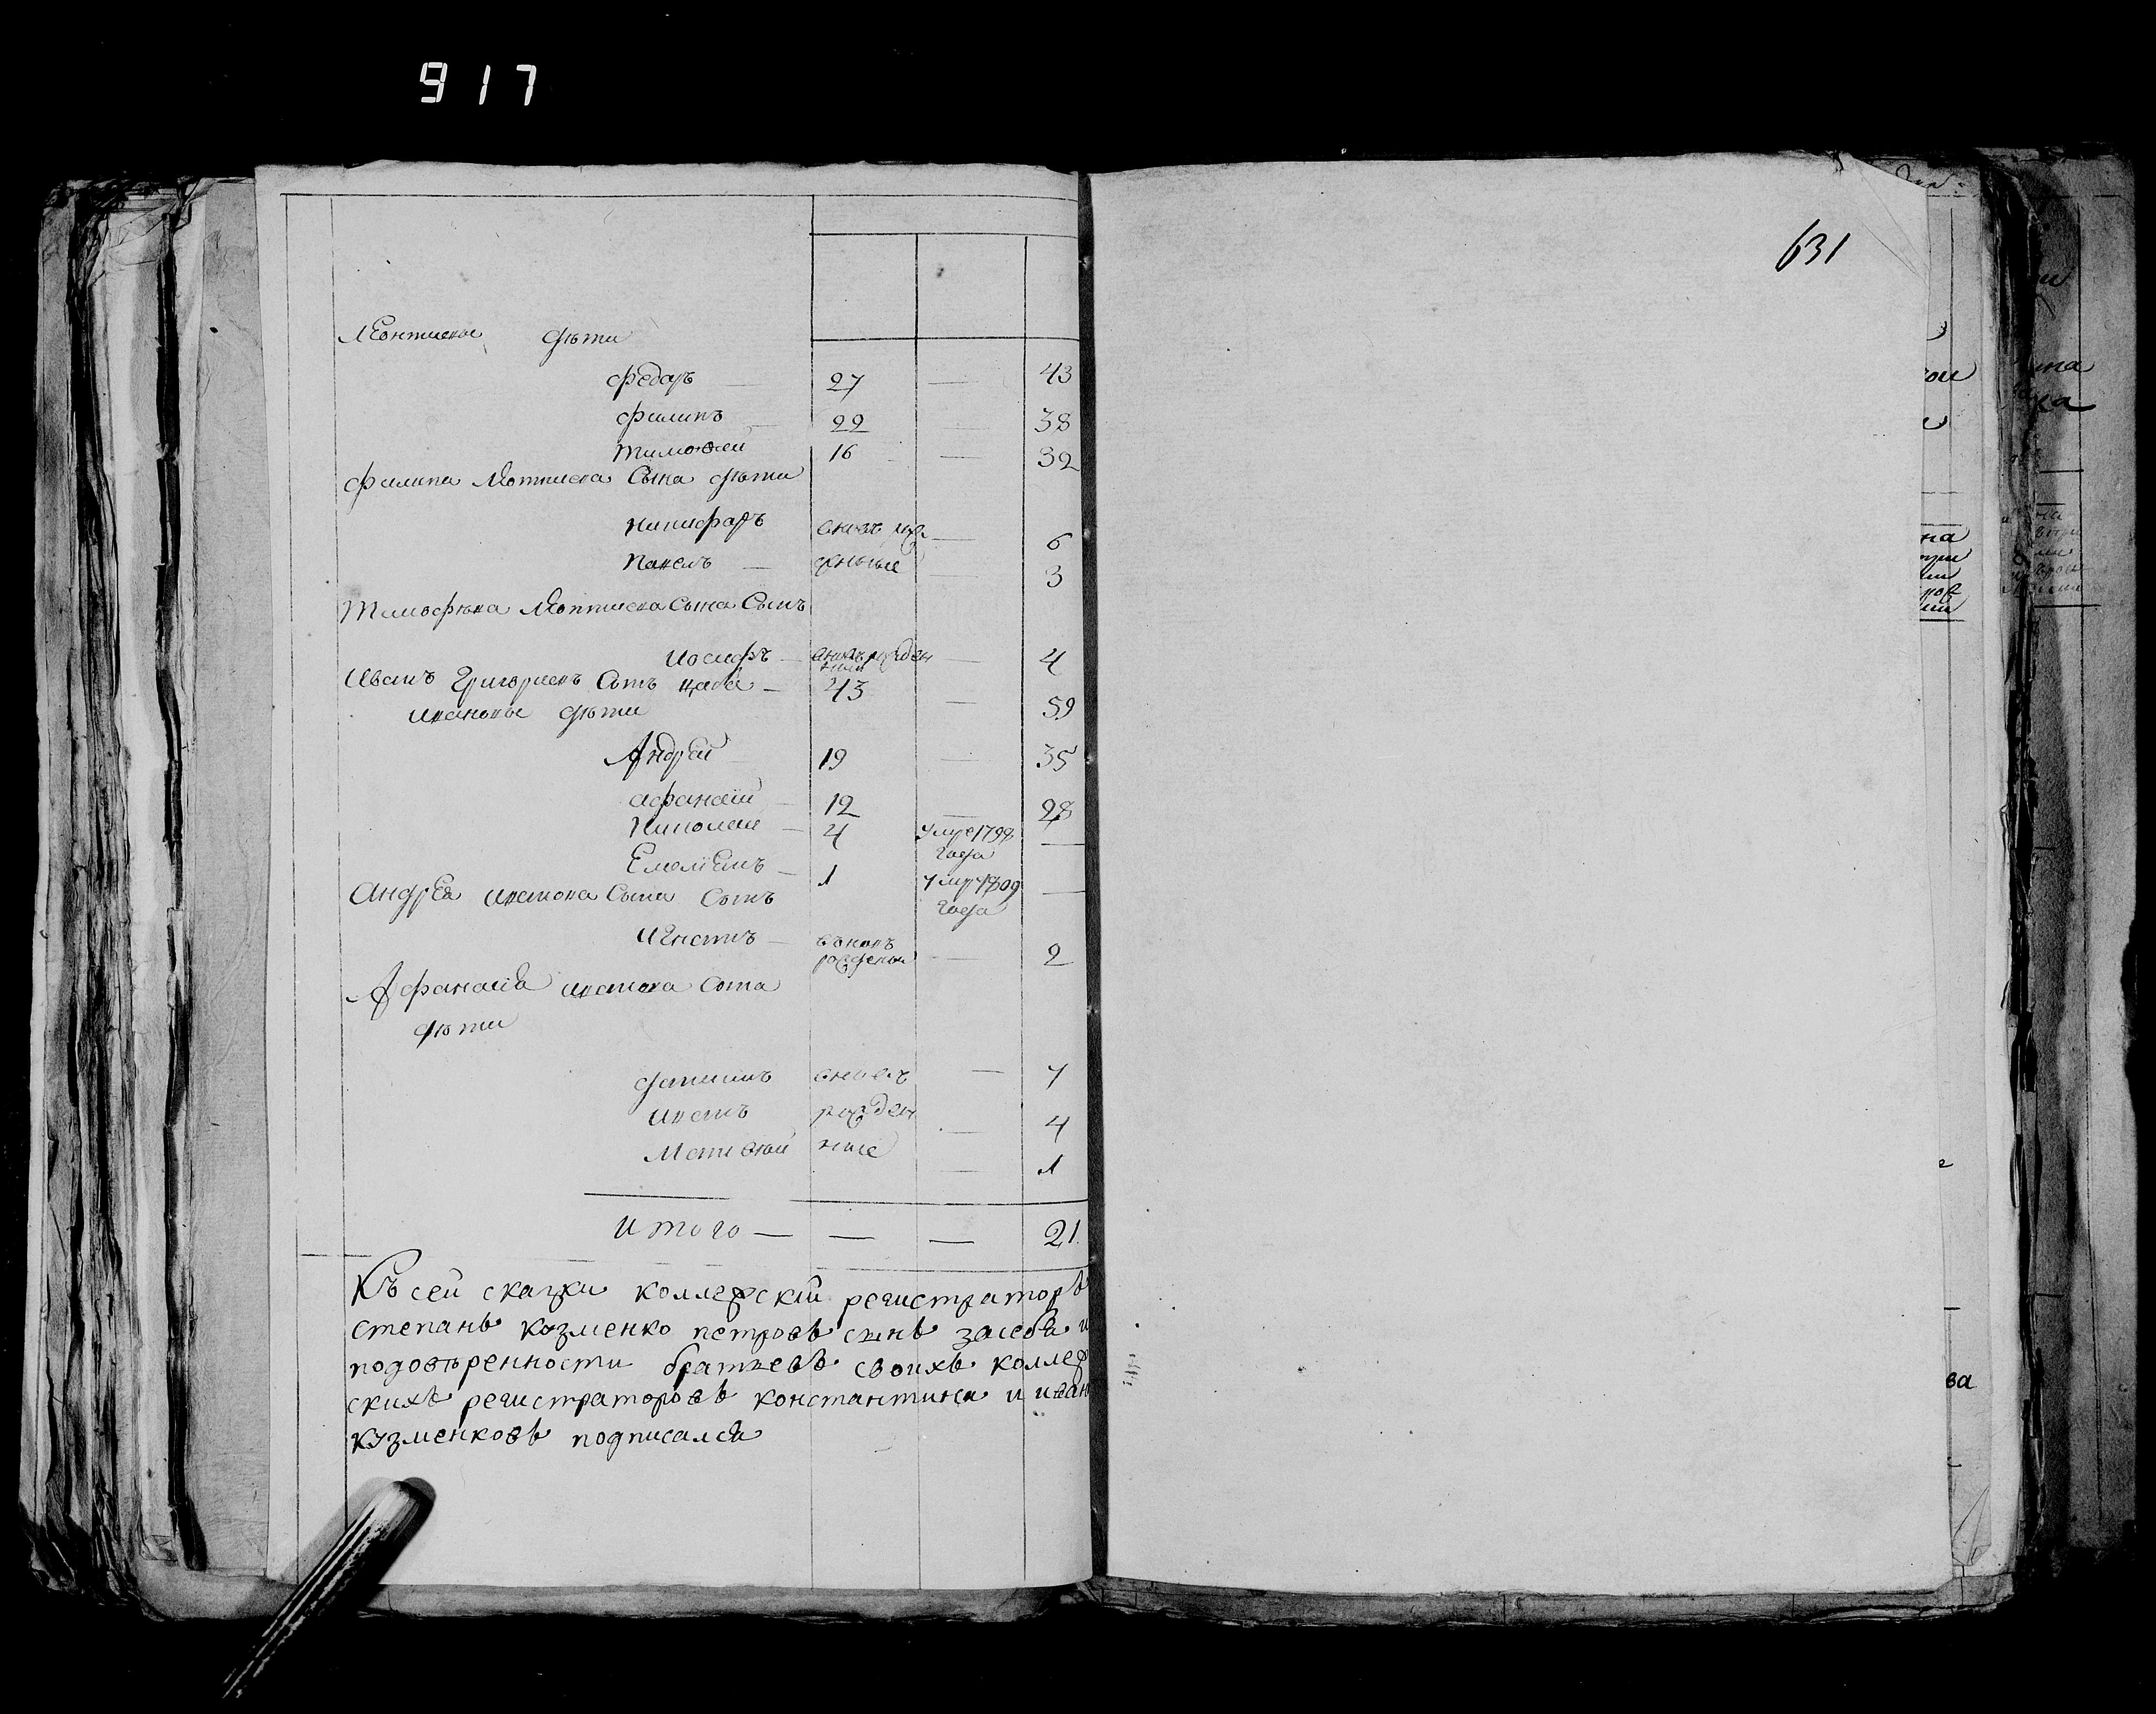 917
631
Леонтиевы дѣти
Федаръ — 27 — 43
Филипъ 22 — 38
Тимофей 16 — 32
Филипа Леонтиева Сына дѣти
Никифаръ вновь рож — 6
Павелъ — денные — 3
Тимофѣва Леонтиева Сына Сынъ
Иосифъ — вновь рожден ный — 4
Иванъ Григориевъ Сынъ — 43 — 59
Ивановы дѣти
Андрей — 19 — 35
Афанасий — 12 — 28
Николай — 4 умре 1798 года —
Емелианъ — 1 умре 1809 года —
Андрея Иванова Сына Сынъ
Игнатъ — вновь рожденой — 2
Афанасия Иванова Сына
дѣти
вновь — 7
Иванъ рожден — 4
Матвѣй ные — 1
Итого — — — 21
Къ сей скаски коллежский регистраторъ
степанъ козменко петровъ сынъ засебя и
подовѣренности братьевъ своихъ коллеж
скихъ регистраторовъ константина и иван
кузменковъ подписался